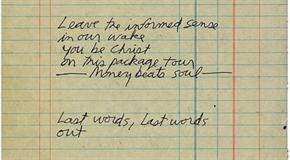 Leave the informed sense
in our wake
you be Christ
on this package tour
— Money beats soul —
Last words, Last words
out